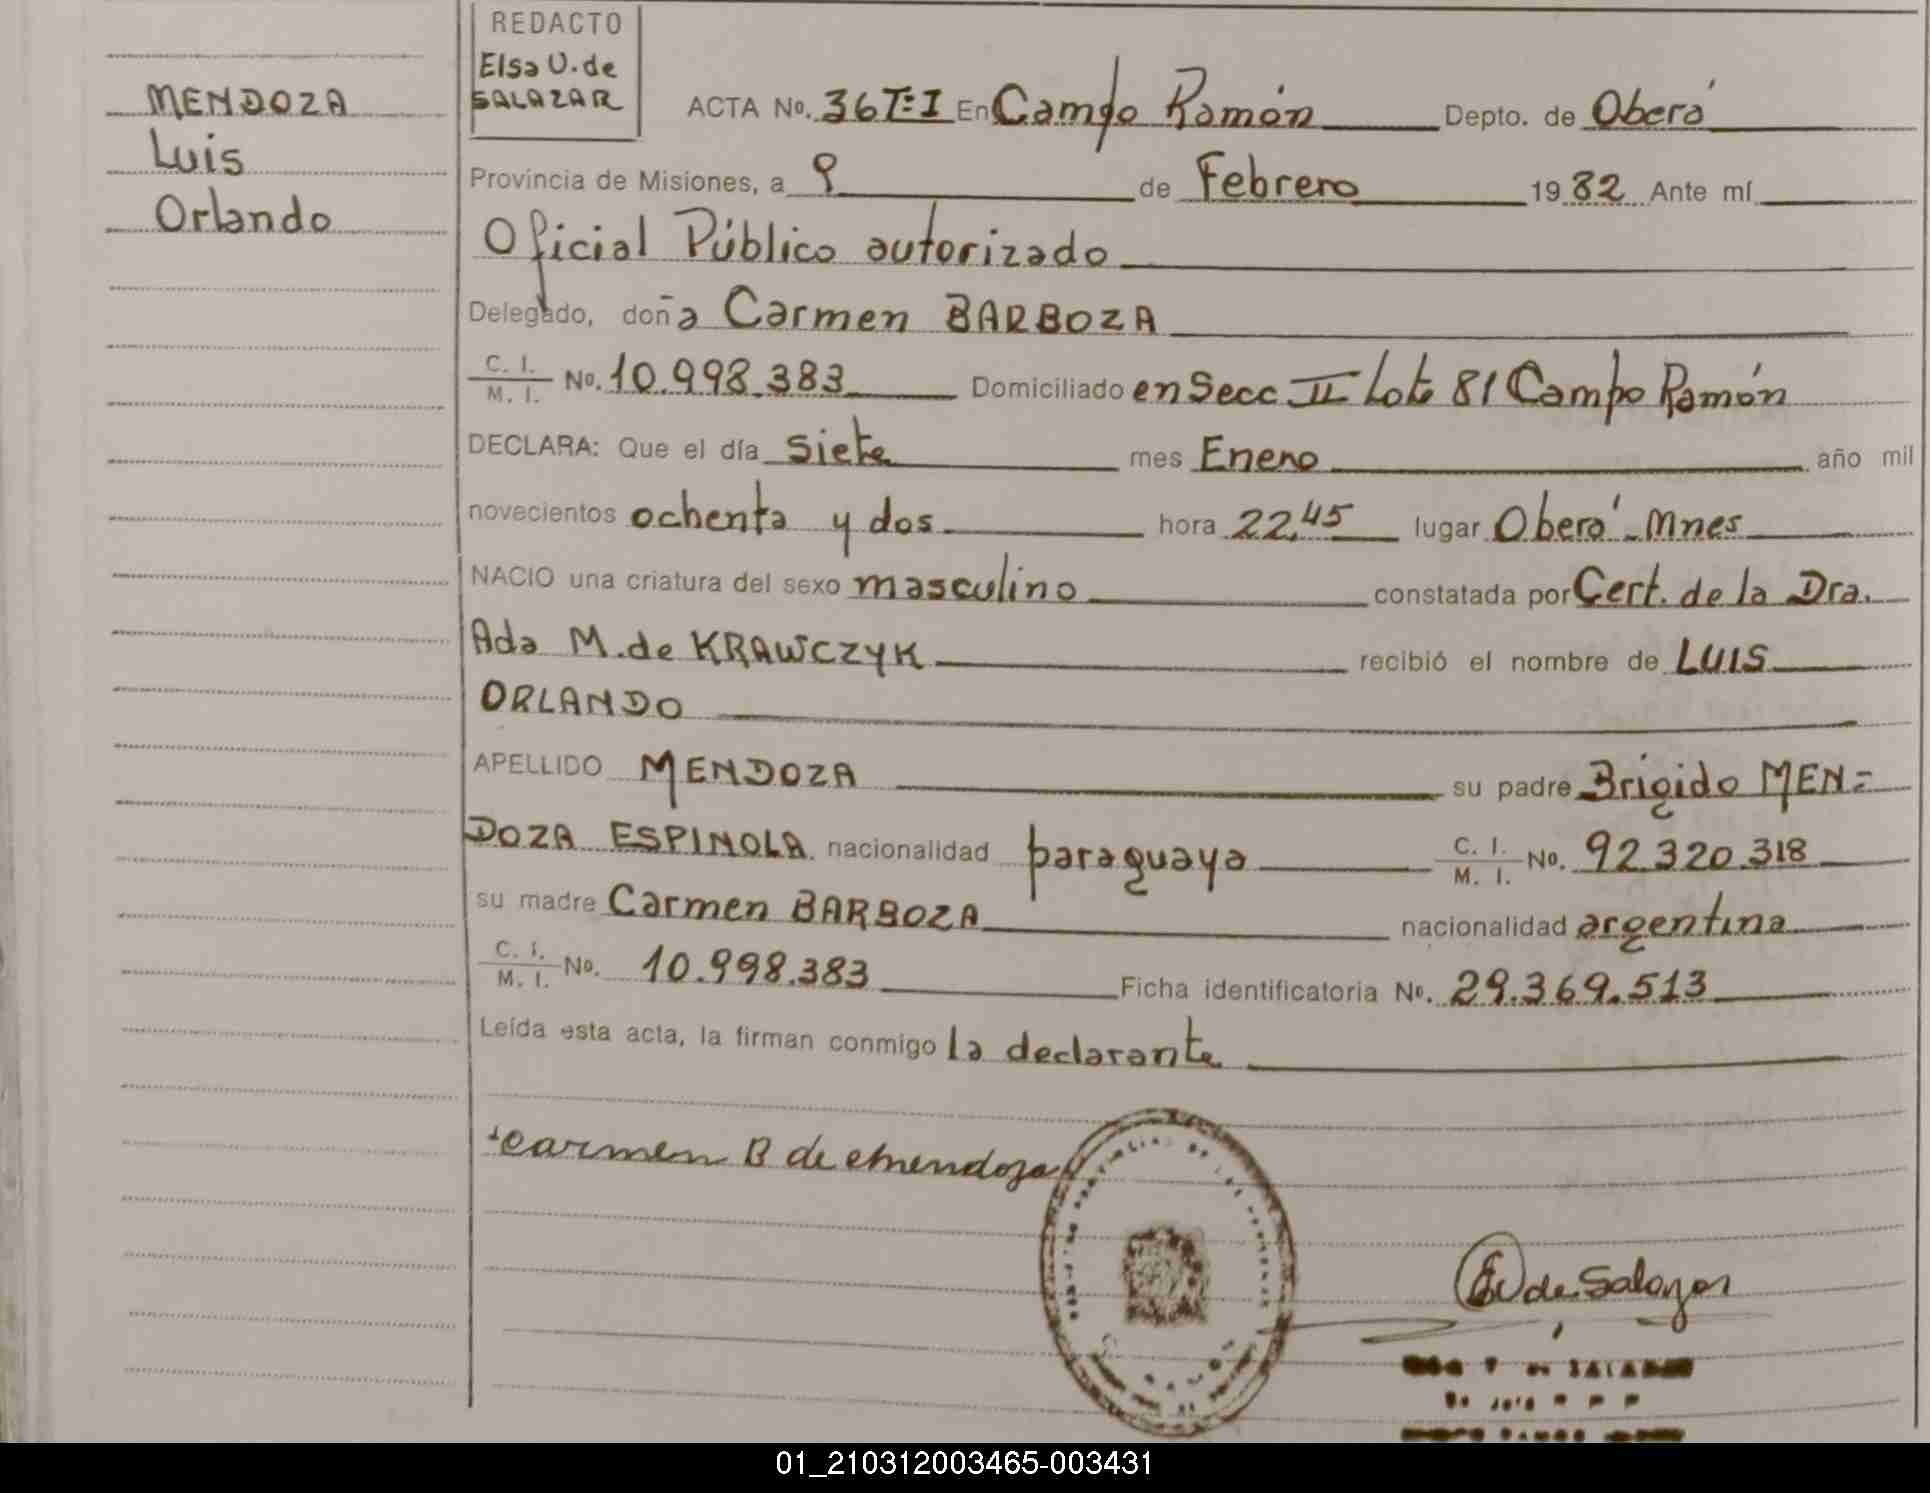 MENDOZA
Luis
Orlando
REDACTO
Elsa V. de
SALAZAR
ACTA No. 36 T:I En Campo Ramón Depto. de Oberá
Provincia de Misiones, a 9 de Febrero 1982 Ante mí
Oficial Público autorizado
Delegado, doña Carmen BARBOZA
C. I. / M. I. No. 10.998.383 Domiciliado en Secc II Lote 81 Campo Ramón
DECLARA: Que el día siete mes Enero año mil
novecientos ochenta y dos hora 22,45 lugar Oberá - Mnes
NACIO una criatura del sexo masculino constatada por Cert. de la Dra.
Ada M. de KRAWCZYK recibió el nombre de LUIS
ORLANDO
APELLIDO MENDOZA su padre Brigido MEN=
DOZA ESPINOLA nacionalidad paraguaya C. I. / M. I. No. 92.320.318
su madre Carmen BARBOZA nacionalidad argentina
C. I. / M. I. No. 10.998.383 Ficha identificatoria No. 29.369.513
Leída esta acta, la firman conmigo la declarante
Carmen B de Mendoza
EV de Salazar
DE SALAZAR
01_210312003465-003431